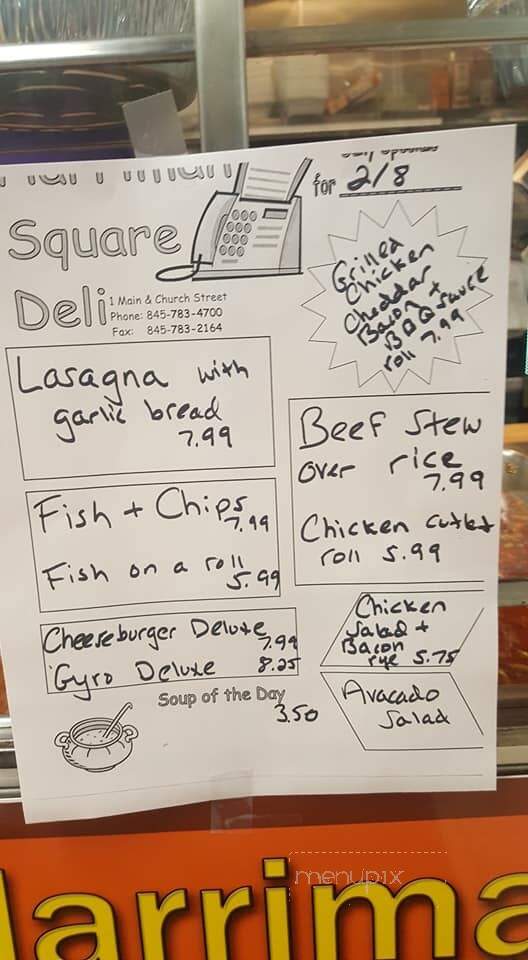 Square
Deli
1 Main & Church Street
Phone: 845-783-4700
Fax: 845-783-2164
for 2/8
Grilled
Chicken
Cheddar
Bacon +
BBQ sauce
roll 7.99
Lasagna with
garlic bread
7.99
Beef Stew
over rice
7.99
Chicken cutlet
roll 5.99
Fish + Chips
7.99
Fish on a roll
5.99
Cheeseburger Deluxe
7.99
Gyro Deluxe 8.25
Chicken
Salad +
Bacon
rye 5.75
Soup of the Day
3.50
Avacado
Salad
menupix
arrima